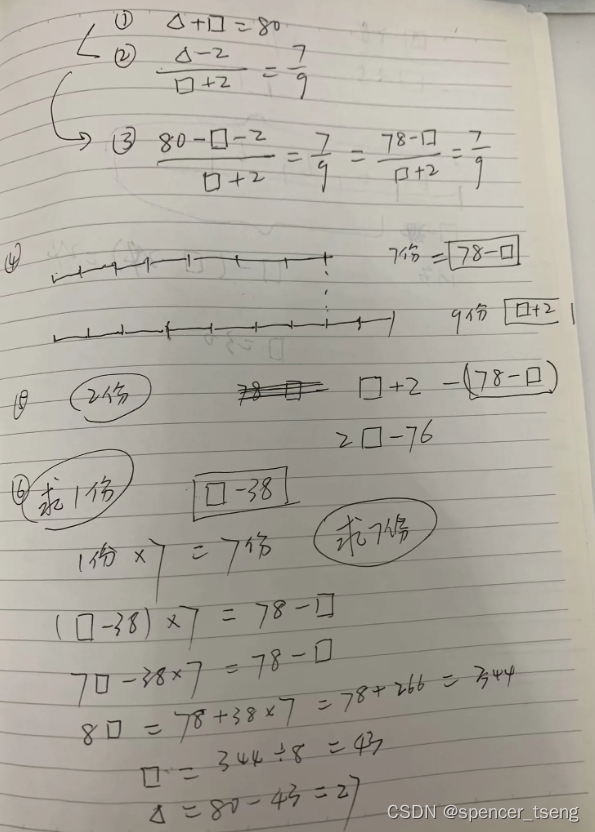 ① △+□=80
② △-2/□+2 = 7/9
③ 80-□-2/□+2 = 7/9 = 78-□/□+2 = 7/9
④ 7份 = 78-□
9份 □+2
⑤ 2份 78 □ □+2 -(78-□)
2□-76
⑥ 求1份 □-38
1份×7 = 7份 求7份
(□-38)×7 = 78-□
7□-38×7 = 78-□
8□ = 78+38×7 = 78+266 = 344
□ = 344÷8 = 43
△ = 80-43 = 27
CSDN @spencer_tseng